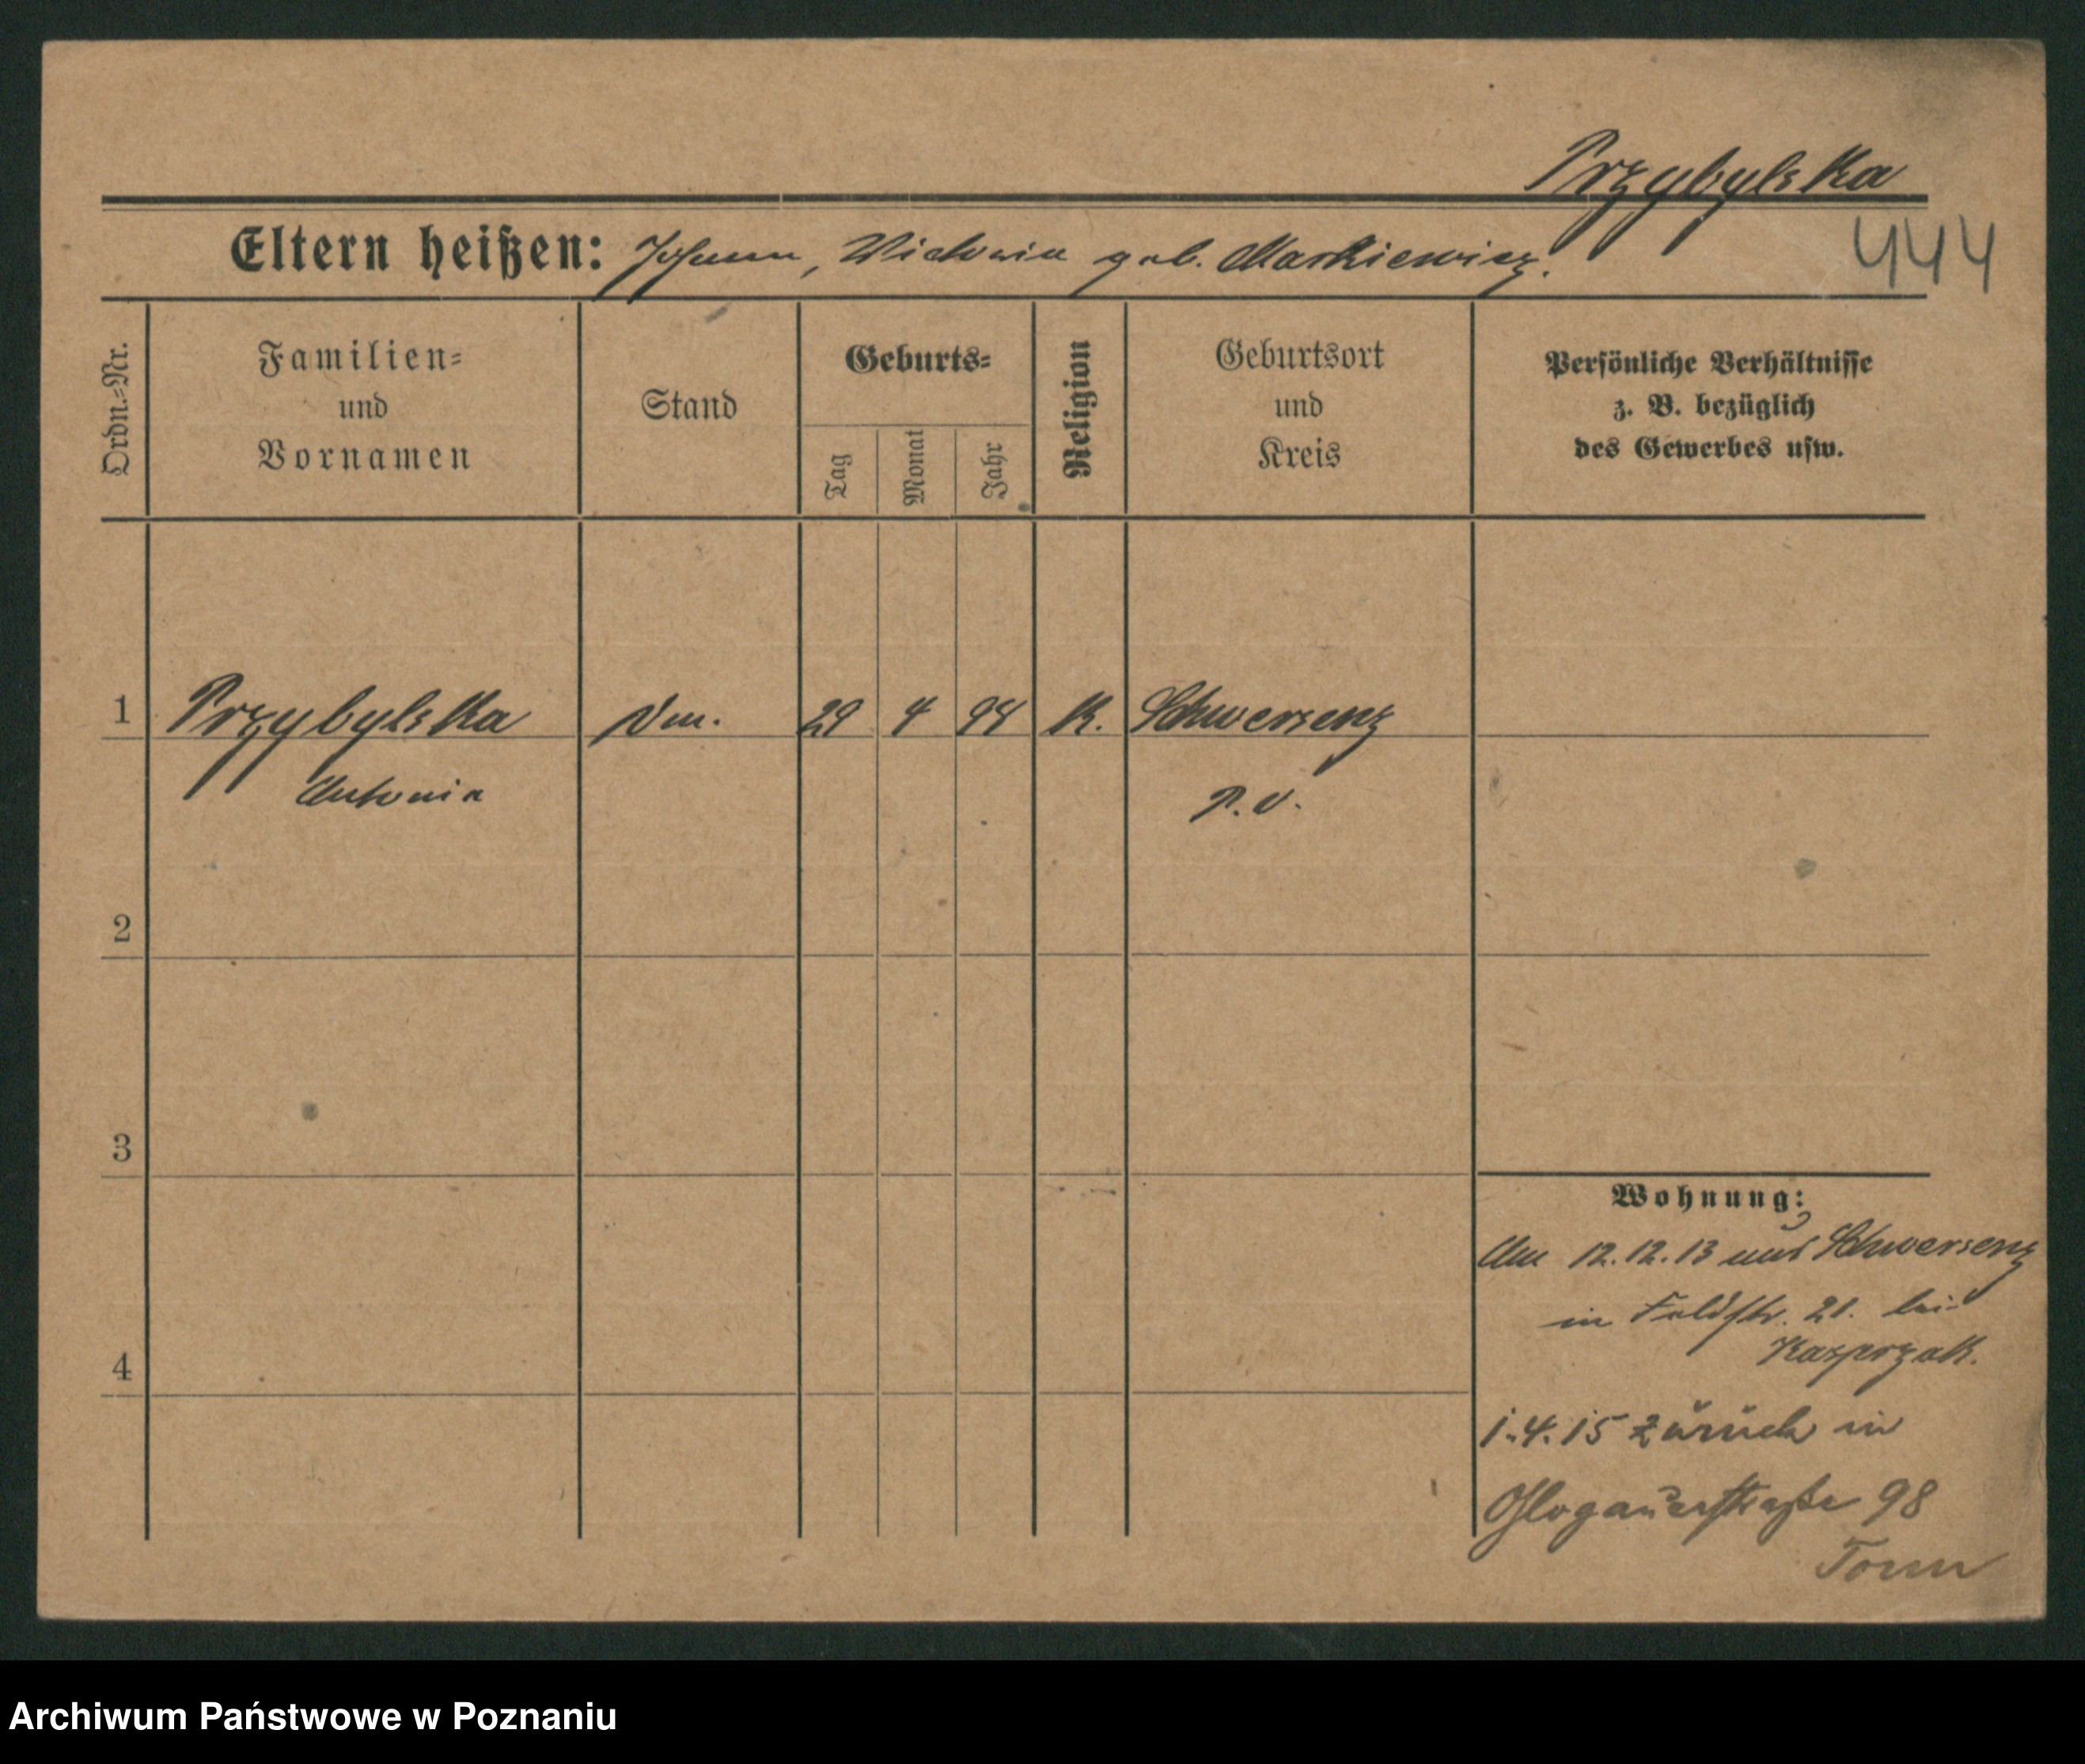 Przybylska
444
Eltern heißen: Johann, Victoria geb. Markiewicz.
Ordn.=Nr.
Familien=
und
Vornamen
Stand
Geburts=
Tag
Monat
Jahr
Religion
Geburtsort
und
Kreis
Persönliche Verhältnisse
z. B. bezüglich
des Gewerbes usw.
1 Przybylska 29 4 98 K. Schwersenz
Antonia P. O.
2
3
4
Wohnung:
Am 12.12.13 aus Schwersenz
in Feldstr. 21. bei
Kasprzak.
1.4.15 zurück in
Glogauerstraße 98
Archiwum Państwowe w Poznaniu